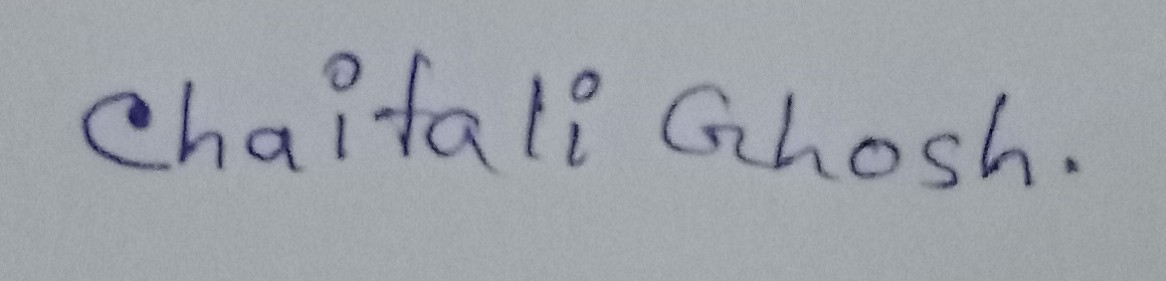 Chaitali Ghosh.